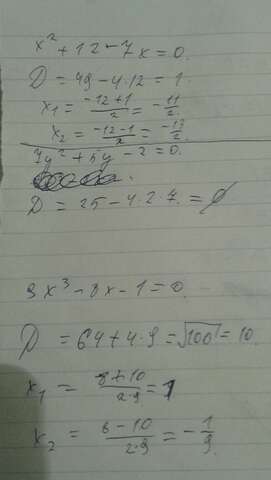 x² + 12 - 7x = 0.
D = 49 - 4·12 = 1.
x₁ = (-12+1)/2 = -11/2
x₂ = (-12-1)/2 = -13/2
7y² + 5y - 2 = 0.
D = 25 - 4·2·7. = ∅
9x³ - 8x - 1 = 0
D = 64 + 4·9 = √100 = 10
x₁ = (8+10)/(2·9) = 1
x₂ = (8-10)/(2·9) = -1/9